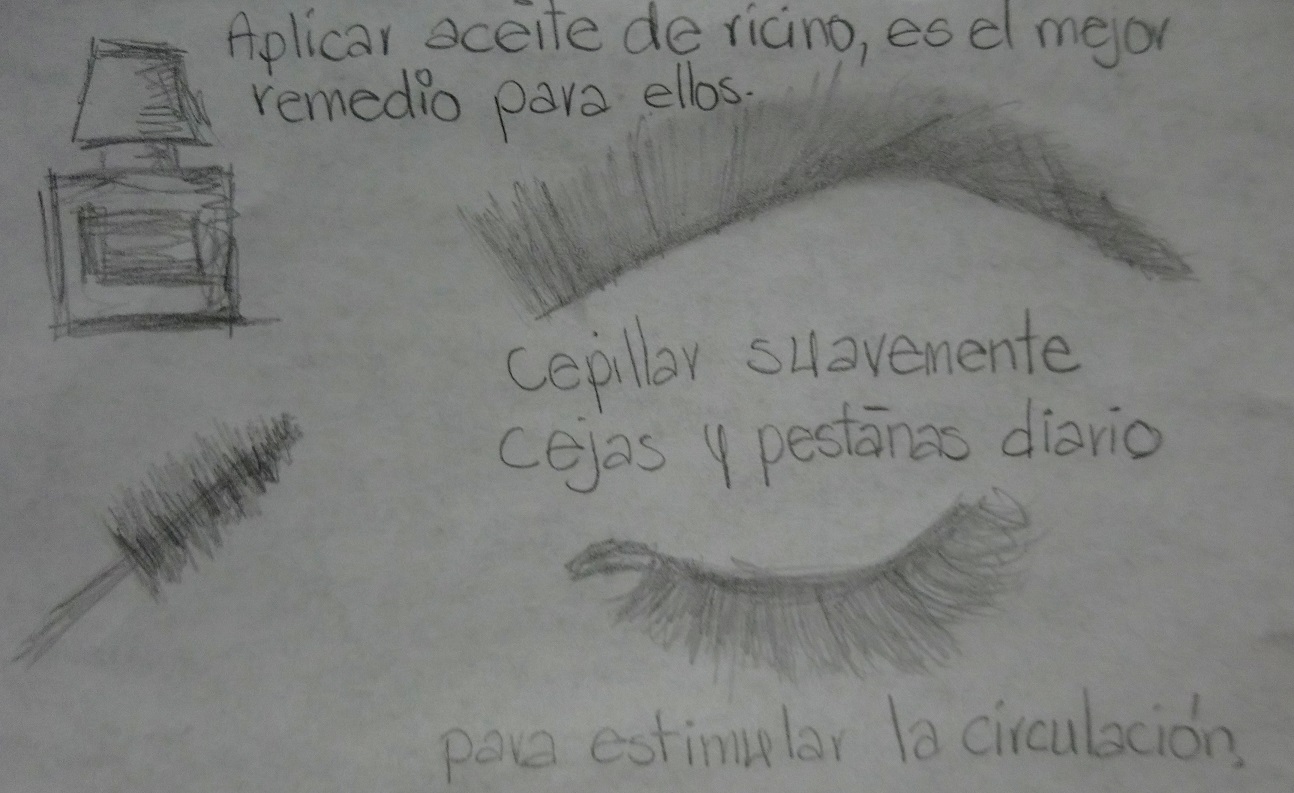 Aplicar aceite de ricino, es el mejor
remedio para ellos.
cepillar suavemente
cejas y pestañas diario
para estimular la circulación,